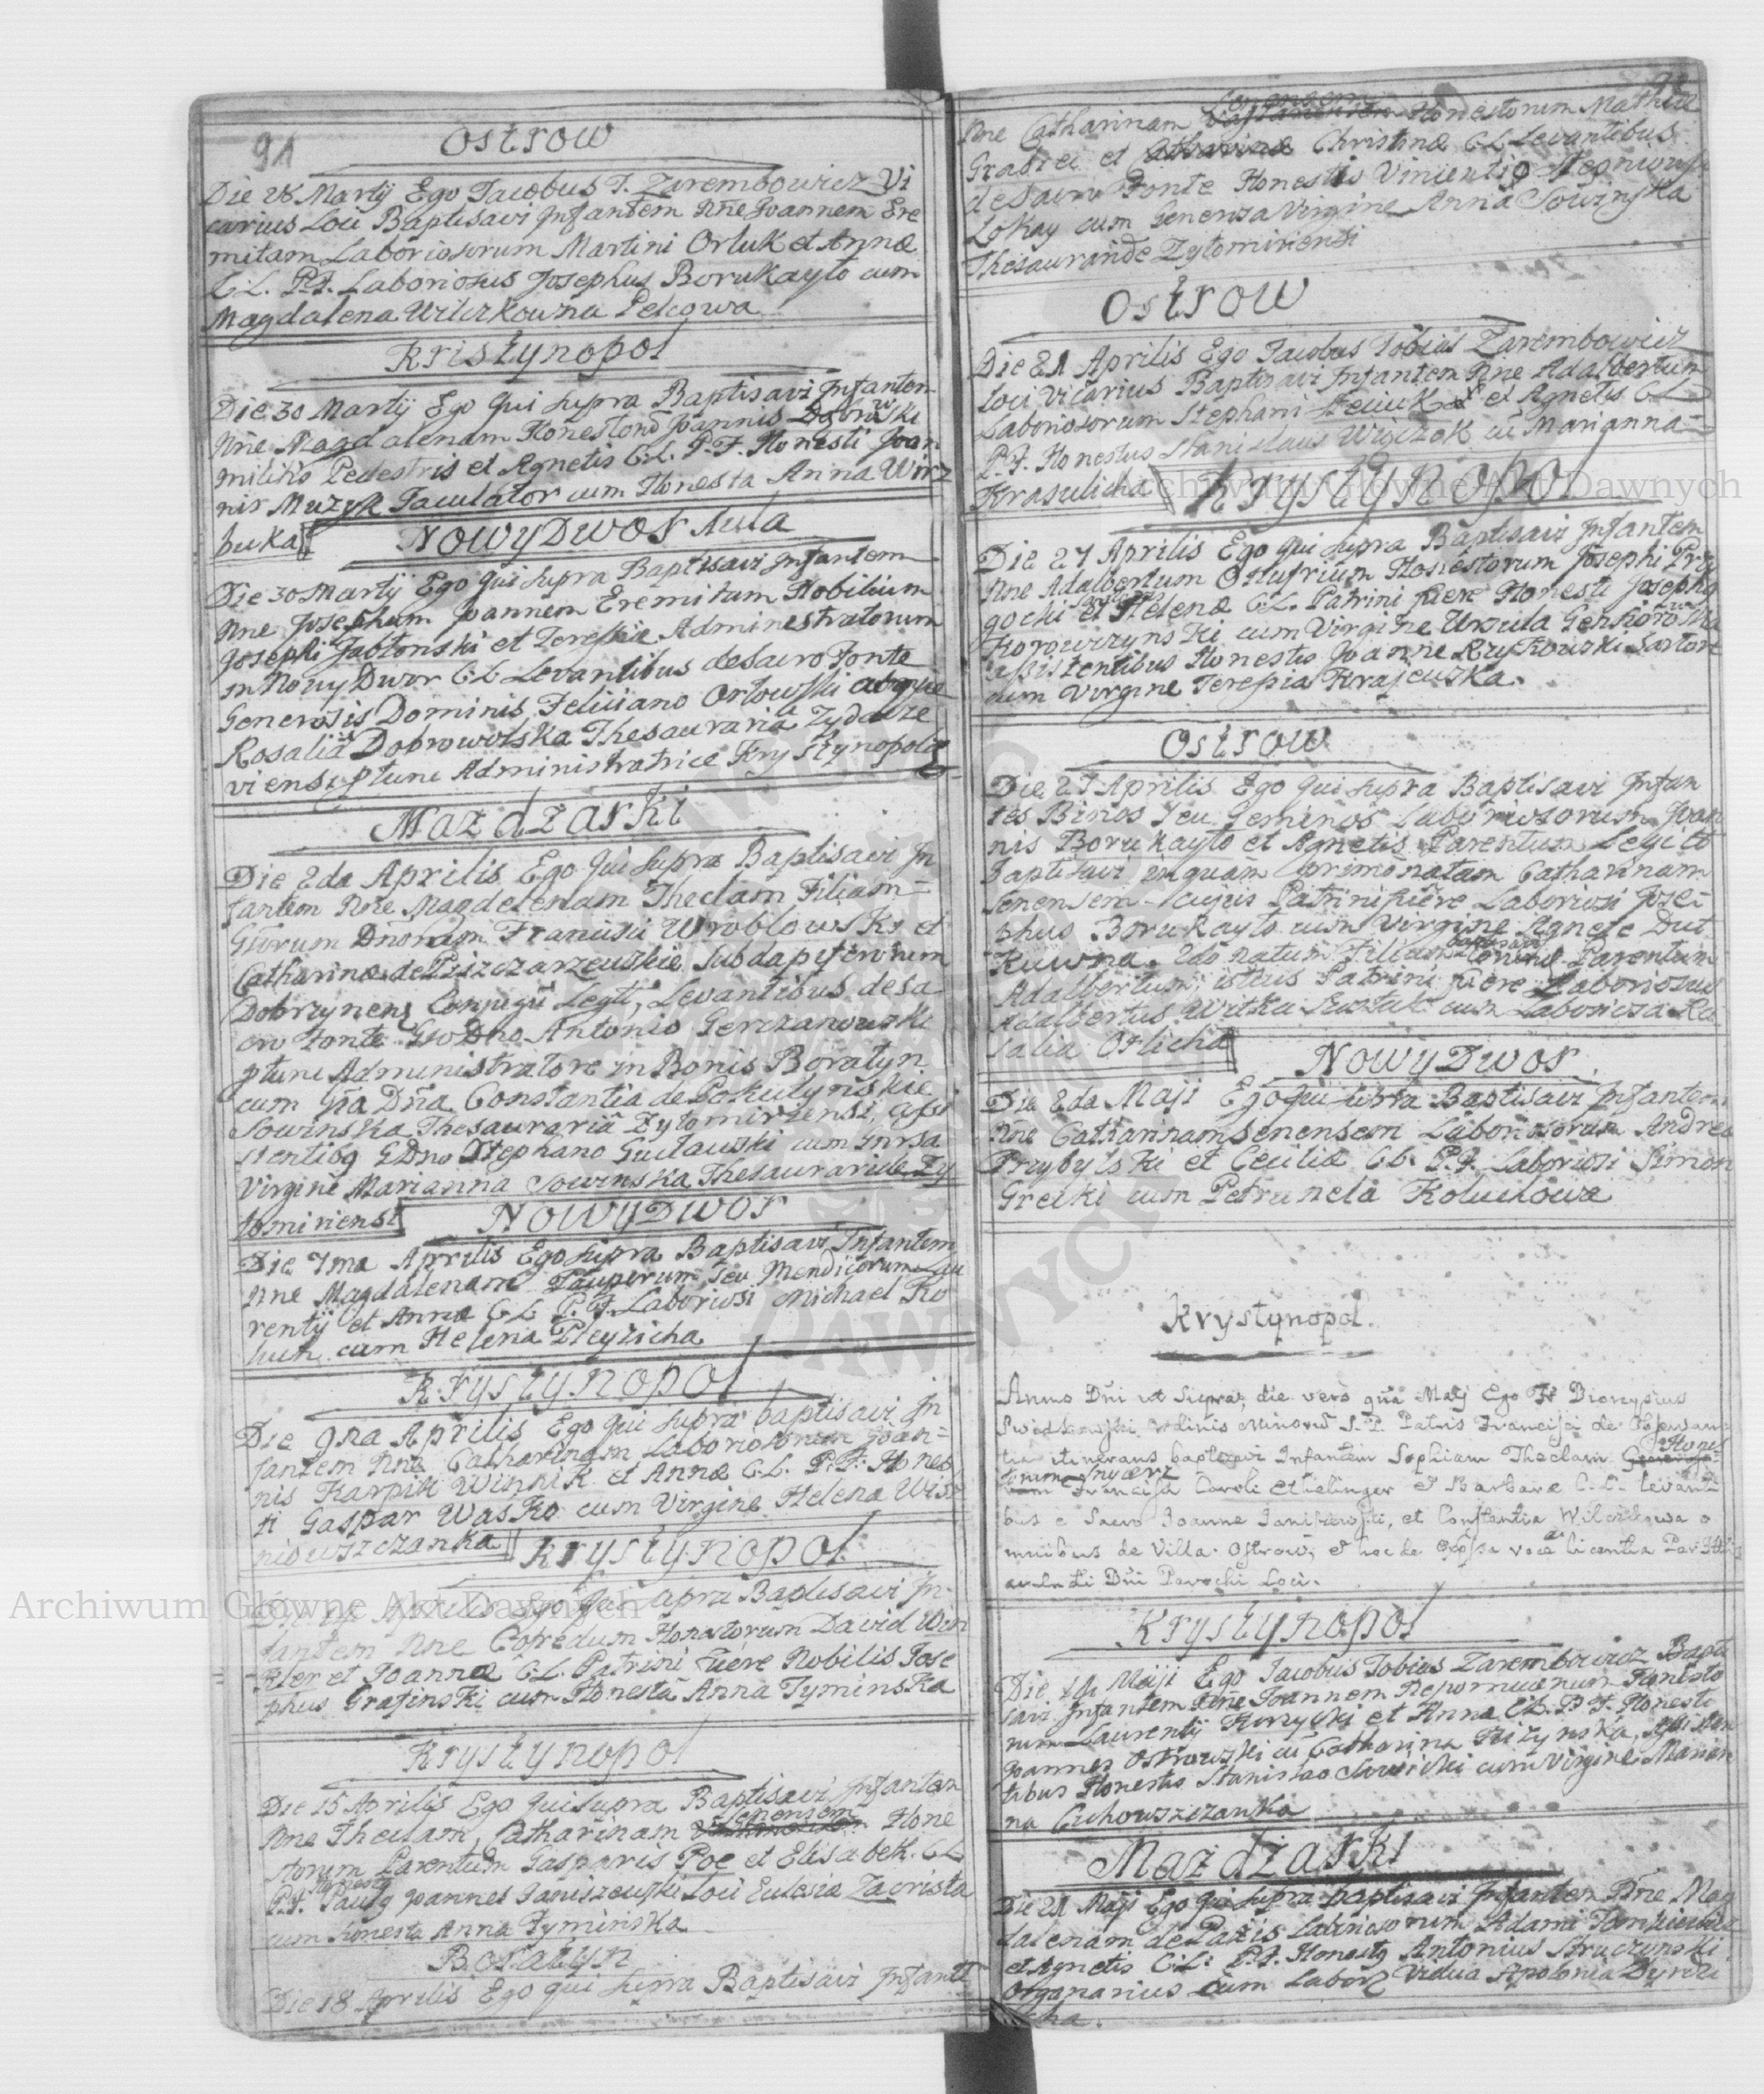 91
Ostrow
Die 28 Martij Ego Jacobus T. Zarembowicz Vi
carius Loci Baptisavi Infantem Nne Joannem Ere
mitam Laboriosorum Martini Orluk et Annæ
C.L. P.F. Laboriosus Josephus Borukayło cum
Magdalena Wilczkowna Pelcowa
Kristynopol
Die 30 Martij Ego Qui Supra Baptisavi Infantem
Nne Magdalenam Honestorũ Joannis Dąbrowski
militis Pedestris et Agnetis C.L. P.F. Honesti Joan
nis Muzyk Jaculator cum Honesta Anna Wirz
buka
Nowy Dwor Aula
Die 30 Martij Ego Qui Supra Baptisavi Infantem
Nne Josephum Joannem Eremitam Nobilium
Josephi Jabłonski et Teressiæ Administratorum
in Nowy Dwor C.L. Levantibus de Sacro Fonte
Generosis Dominis Feliciano Orłowski atque
Rosalia Dobrowolska Thesauraria Zydacze
viensi ptunc Administratrice Krystynopoliæ
Mazdzarki
Die 2da Aprilis Ego Qui Supra Baptisavi In
fantem Nne Magdalenam Theclam Filiam
Gsorum Dnorum Francisci Wroblowski et
Catharinæ de Piszczarzewskie Subdapiferorum
Dobrzynens Conjugũ Legti, Levantibus de Sa
cro Fonte Gso Dno Antonio Gerczanowski
ptunc Administratore in Bonis Boratyn
cum Gsa Dña Constantia de Pokutynskie
Sowinska Thesauraria Zytomirzensi, assi
stentibq GDno Stephano Gutawski cum Gnrsa
Virgine Marianna Sowinska Thesauraride Zy
tomiriensi
Nowy Dwor
Die 7ma Aprilis Ego Supra Baptisavi Infantem
Nne Magdalenam Pauperum seu Mendicorum Lau
rentij et Annæ C.L. P.F. Laboriosi Michael Ko
hun cum Helena Pleyzicha
Krystynopol
Die 9na Aprilis Ego Qui Supra baptisavi In
fantem Nne Catharinam Laboriosorum Joan
nis Karpik Winnik et Annæ C.L. P.F. Hones
ti Gaspar Wasko cum Virgine Helena Wisz
niowszczanka
Krystynopol
Aprilis Ego Qui Supra Baptisavi In
fantem Nne Gotfredum Honestorum David Win
kler et Joannæ C.L. Patrini Fuere Nobilis Jose
phus Grasinski cum Honesta Anna Tyminska
Krystynopol
Die 15 Aprilis Ego Qui Supra Baptisavi Infantem
Nne Theclam, Catharinam Senensem Hone
storum Parentum Gasparis Poe et Elisabeth C.L.
P.F. Honestq Joannes Janiszewski Loci Eclesiæ Zacrista
cum honesta Anna Tyminska
Boratyn
Die 18 Aprilis Ego qui Supra Baptisavi Infant
Nne Catharinam Senensem Honestorum Mathiæ
Grabiec et Christinæ C.L. Levantibus
de Sacro Fonte Honesto Vincentio
Lokay cum Generosa Virgine Anna Sowinska
Thesauraride Zytomiriensi
Ostrow
Die 21 Aprilis Ego Jacobus Tobias Zarembowicz
Loci Vicarius Baptisavi Infantem Nne Adalbertum
Laboriosorum Stephani et Agnetis C.L.
P.F. Honestus Stanislaus Wojczok cũ Marianna
Krasulicha
Krystynopol
Die 27 Aprilis Ego Qui Supra Baptisavi Infantem
Nne Adalbertum Onufrium Honestorum Josephi Przy
gocki et Helenæ C.L. Patrini fuere Honesti Josephq
Korowrzynski cum Virgine Ursula
assistentibus Honesto Joanne Ryzkowski Sartore
cum Virgine Teressia Krajewska.
Ostrow
Die 27 Aprilis Ego Qui Supra Baptisavi Infan
tes Binos seu Geminos Laboriosorum Joan
nis Borukayło et Agnetis Parentum Legit
Baptisavi inquam primo natam Catharinam
Senensem cujus Patrini fuere Laboriosi Jose
phus Borukayło cum Virgine Agnete Dut
kowna. 2do natum Filium baptisavi eorund Parentum
Adalbertum, istius Patrini fuere Laboriosus
Adalbertus Witka cum Laboriosa Ro
salia Orlicha
Nowy Dwor
Die 2da Maji Ego qui supra Baptisavi Infantem
Nne Catharinam Senensem Laboriosorum Andreæ
Przybylski et Ceciliæ C.L. P.F. Laboriosi Simon
Grecki cum Petrunela Kolucłowa
Krystynopol.
Anno Dni ut Supra, die vero Maij Ego Fr Dionysius
Ordinis Minorũ S.P. Patris Francisci de Observan
tia itinerans baptisavi Infantem Sophiam Theclam Hones
torum Caroli Ettelinger et Barbaræ C.L. Levanti
bus e Sacro Joanne Janiszewski, et Constantia Wilczkowa o
mnibus de Villa Ostrow, et hoc de licentia
Dni Parochi Loci.
Krystynopol
Die Maji Ego Jacobus Tobias Zarembowicz Bapti
savi Infantem Nne Joannem Nepomucenum Honesto
rum Laurentij Kurzycki et Anna C.L. P.F. Honesti
Joannes Ostrowski cũ Catharina
tibus Honesto Stanislao Sawicki cum Virgine Marian
na Cichowszczanka
Mazdzarki
Die 21 Maji Ego Qui Supra baptisavi Infantem Nne Mag
dalenam de Pazis Laboriosorum Adami
et Agnetis C.L. P.F. Honestq Antonius Struczynski
Organarius cum Laborz Vidua Apolonia
cha.
Archiwum Główne Akt Dawnych
Archiwum Główne Akt Dawnych